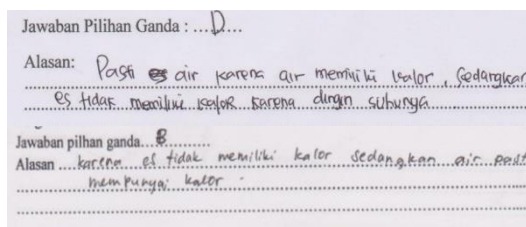 Jawaban Pilihan Ganda : ....D....
Alasan: Pasti es air karena air memiliki kalor, sedangkan
es tidak memiliki kalor karena dingin suhunya
Jawaban pilhan ganda...B..........
Alasan ....karena es tidak memiliki kalor sedangkan air past
mempunyai kalor.